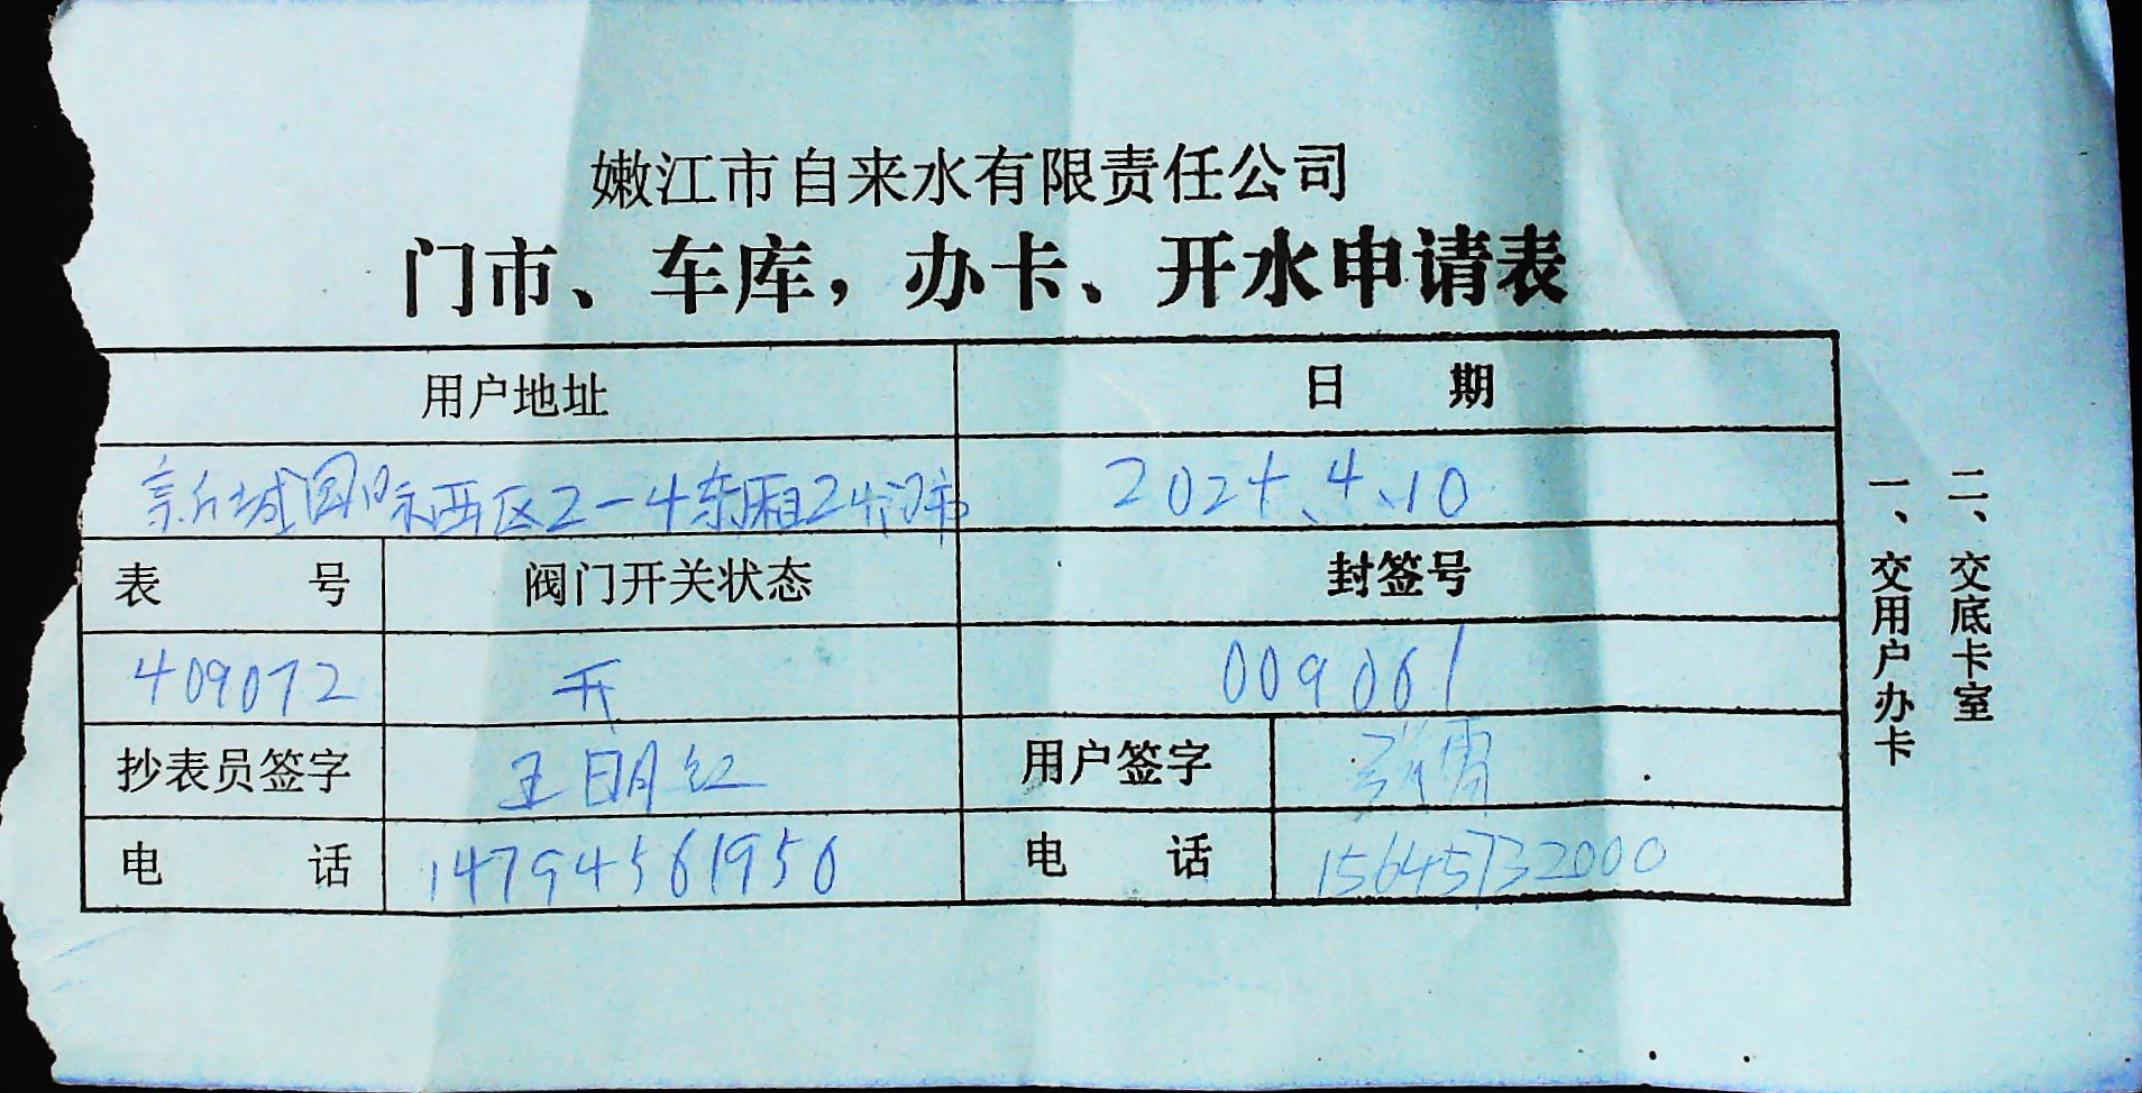 嫩江市自来水有限责任公司
门市、车库，办卡、开水申请表
用户地址 日 期
新城国际西区2-4东厢24门市 2024.4.10
表 号 阀门开关状态 封签号
409072 开 009061
抄表员签字 王明红 用户签字
电 话 14794561950 电 话 15645732000
一、交用户办卡
二、交底卡室